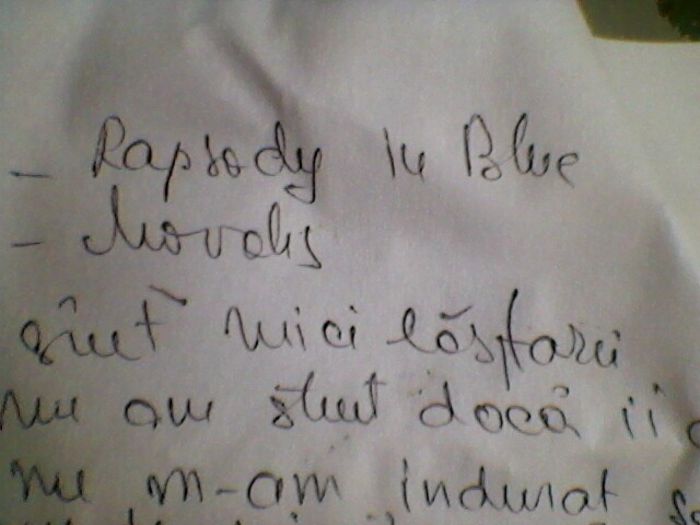 - Rapsody in Blue
- Novalis
sînt mici lăstarii
nu am știut dacă ii
nu m-am indurat